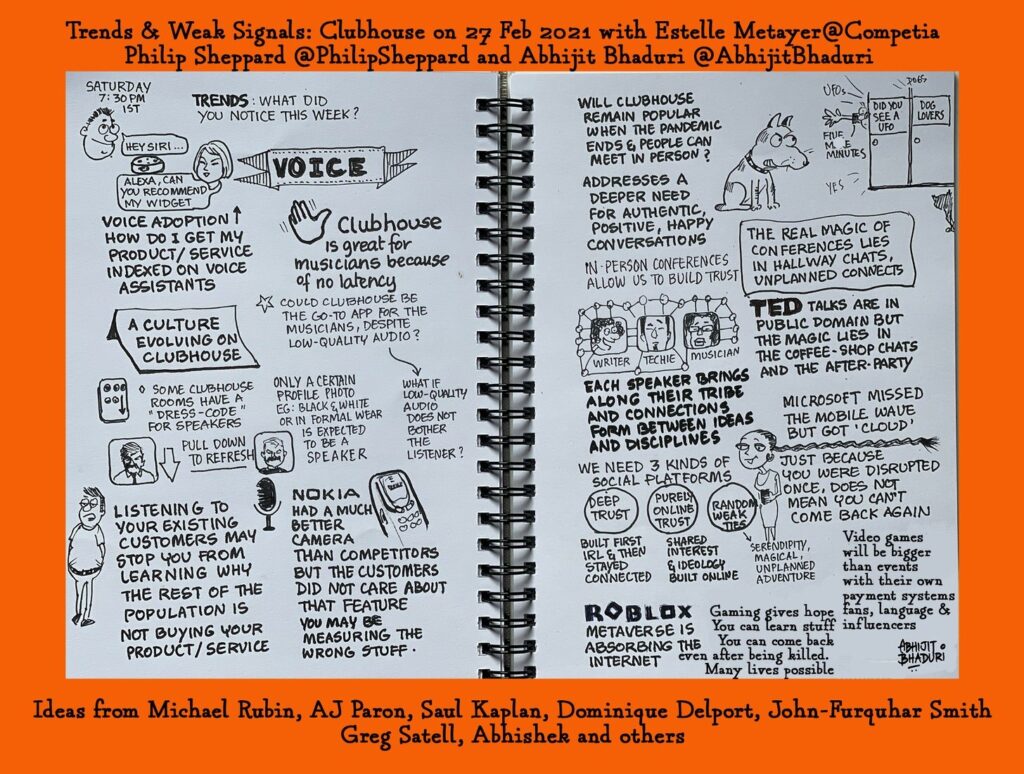 Trends & Weak Signals: Clubhouse on 27 Feb 2021 with Estelle Metayer@Competia
Philip Sheppard @PhilipSheppard and Abhijit Bhaduri @AbhijitBhaduri
SATURDAY
7:30 PM
IST
TRENDS: WHAT DID
YOU NOTICE THIS WEEK?
HEY SIRI...
ALEXA, CAN
YOU RECOMMEND
MY WIDGET
VOICE
VOICE ADOPTION ↑
HOW DO I GET MY
PRODUCT/SERVICE
INDEXED ON VOICE
ASSISTANTS
Clubhouse
is great for
musicians because
of no latency
☆ COULD CLUBHOUSE BE
THE GO-TO APP FOR THE
MUSICIANS, DESPITE
LOW-QUALITY AUDIO?
A CULTURE
EVOLVING ON
CLUBHOUSE
◊ SOME CLUBHOUSE
ROOMS HAVE A
"DRESS-CODE"
FOR SPEAKERS
ONLY A CERTAIN
PROFILE PHOTO
EG: BLACK & WHITE
OR IN FORMAL WEAR
IS EXPECTED
TO BE A
SPEAKER
WHAT IF
LOW-QUALITY
AUDIO
DOES NOT
BOTHER
THE
LISTENER?
PULL DOWN
TO REFRESH
LISTENING TO
YOUR EXISTING
CUSTOMERS MAY
STOP YOU FROM
LEARNING WHY
THE REST OF THE
POPULATION IS
NOT BUYING YOUR
PRODUCT/SERVICE
NOKIA
HAD A MUCH
BETTER
CAMERA
THAN COMPETITORS
BUT THE CUSTOMERS
DID NOT CARE ABOUT
THAT FEATURE
YOU MAY BE
MEASURING THE
WRONG STUFF.
WILL CLUBHOUSE
REMAIN POPULAR
WHEN THE PANDEMIC
ENDS & PEOPLE CAN
MEET IN PERSON?
UFOs
DOGS
DID YOU
SEE A
UFO
DOG
LOVERS
FIVE
MINUTES
YES
ADDRESSES A
DEEPER NEED
FOR AUTHENTIC,
POSITIVE, HAPPY
CONVERSATIONS
IN-PERSON CONFERENCES
ALLOW US TO BUILD TRUST
THE REAL MAGIC OF
CONFERENCES LIES
IN HALLWAY CHATS,
UNPLANNED CONNECTS
WRITER
TECHIE
MUSICIAN
TED TALKS ARE IN
PUBLIC DOMAIN BUT
THE MAGIC LIES IN
THE COFFEE-SHOP CHATS
AND THE AFTER-PARTY
EACH SPEAKER BRINGS
ALONG THEIR TRIBE
AND CONNECTIONS
FORM BETWEEN IDEAS
AND DISCIPLINES
MICROSOFT MISSED
THE MOBILE WAVE
BUT GOT 'CLOUD'
JUST BECAUSE
YOU WERE DISRUPTED
ONCE, DOES NOT
MEAN YOU CAN'T
COME BACK AGAIN
WE NEED 3 KINDS OF
SOCIAL PLATFORMS
DEEP
TRUST
PURELY
ONLINE
TRUST
RANDOM
WEAK
TIES
BUILT FIRST
IRL & THEN
STAYED
CONNECTED
SHARED
INTEREST
& IDEOLOGY
BUILT ONLINE
SERENDIPITY,
MAGICAL,
UNPLANNED
ADVENTURE
Video games
will be bigger
than events
with their own
payment systems
fans, language &
influencers
ROBLOX
METAVERSE IS
ABSORBING THE
INTERNET
Gaming gives hope
You can learn stuff
You can come back
even after being killed.
Many lives possible
ABHIJIT
BHADURI
Ideas from Michael Rubin, AJ Paron, Saul Kaplan, Dominique Delport, John-Furquhar Smith
Greg Satell, Abhishek and others